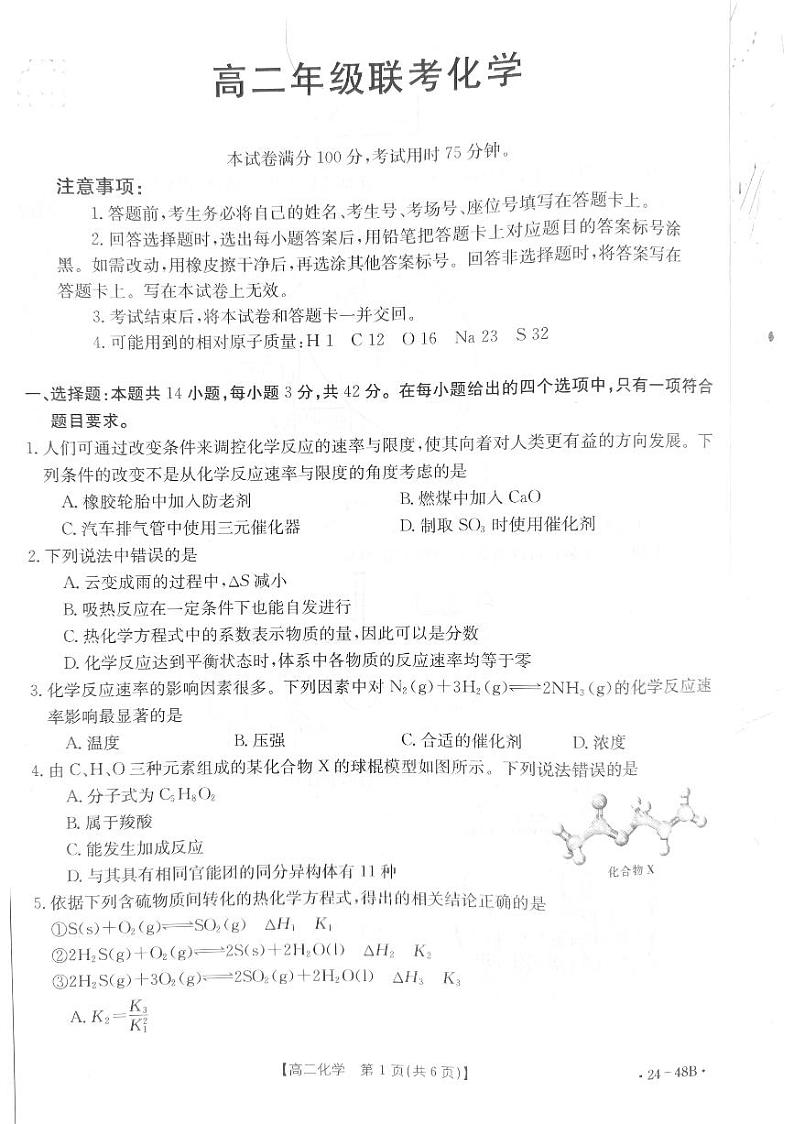 高二年级联考化学
本试卷满分 100 分,考试用时 75 分钟。
注意事项:
1. 答题前,考生务必将自己的姓名、考生号、考场号、座位号填写在答题卡上。
2. 回答选择题时,选出每小题答案后,用铅笔把答题卡上对应题目的答案标号涂
黑。如需改动,用橡皮擦干净后,再选涂其他答案标号。回答非选择题时,将答案写在
答题卡上。写在本试卷上无效。
3. 考试结束后,将本试卷和答题卡一并交回。
4. 可能用到的相对原子质量:H 1 C 12 O 16 Na 23 S 32
一、选择题:本题共 14 小题,每小题 3 分,共 42 分。在每小题给出的四个选项中,只有一项符合
题目要求。
1. 人们可通过改变条件来调控化学反应的速率与限度,使其向着对人类更有益的方向发展。下
列条件的改变不是从化学反应速率与限度的角度考虑的是
A. 橡胶轮胎中加入防老剂 B. 燃煤中加入 CaO
C. 汽车排气管中使用三元催化器 D. 制取 SO₃ 时使用催化剂
2. 下列说法中错误的是
A. 云变成雨的过程中,ΔS 减小
B. 吸热反应在一定条件下也能自发进行
C. 热化学方程式中的系数表示物质的量,因此可以是分数
D. 化学反应达到平衡状态时,体系中各物质的反应速率均等于零
3. 化学反应速率的影响因素很多。下列因素中对 N₂(g)+3H₂(g)⇌2NH₃(g)的化学反应速
率影响最显著的是
A. 温度 B. 压强 C. 合适的催化剂 D. 浓度
4. 由 C、H、O 三种元素组成的某化合物 X 的球棍模型如图所示。下列说法错误的是
A. 分子式为 C₅H₈O₂
B. 属于羧酸
C. 能发生加成反应
D. 与其具有相同官能团的同分异构体有 11 种
化合物 X
5. 依据下列含硫物质间转化的热化学方程式,得出的相关结论正确的是
①S(s)+O₂(g)⇌SO₂(g) ΔH₁ K₁
②2H₂S(g)+O₂(g)⇌2S(s)+2H₂O(l) ΔH₂ K₂
③2H₂S(g)+3O₂(g)⇌2SO₂(g)+2H₂O(l) ΔH₃ K₃
A. K₂=K₃/K₁²
【高二化学 第 1 页(共 6 页)】
·24-48B·